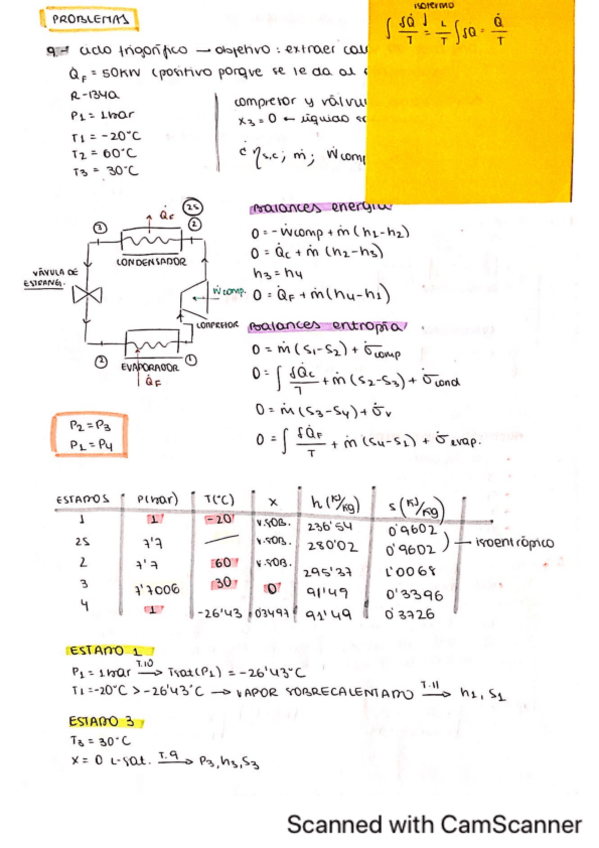 PROBLEMAS
9.1 ciclo frigorífico → objetivo: extraer
Q̇F = 50KW (positivo porque se le da al
R-134a
P1 = 1bar
T1 = -20°C
T2 = 60°C
T3 = 30°C
compresor y válvu
x3 = 0 ← líquido
¿ηs.c; ṁ; Ẇcomp
isotermo
∫ δQ̇/T = 1/T ∫ δQ̇ = Q̇/T
Q̇c
2s
3
2
CONDENSADOR
VÁVULA DE
ESTRANG.
Ẇcomp.
COMPRESOR
EVAPORADOR
1
Q̇F
P2 = P3
P1 = P4
Balances energía
0 = -Ẇcomp + ṁ (h1-h2)
0 = Q̇c + ṁ (h2-h3)
h3 = h4
0 = Q̇F + ṁ(h4-h1)
Balances entropía
0 = ṁ (s1-s2) + σ̇comp
0 = ∫ δQ̇c/T + ṁ (s2-s3) + σ̇cond
0 = ṁ (s3-s4) + σ̇v
0 = ∫ δQ̇F/T + ṁ (s4-s1) + σ̇evap.
ESTADOS P(bar) T(°C) x h (KJ/Kg) s (KJ/Kg)
1 1 -20 V.SOB. 236'54 0'9602
2s 7'7 — V.SOB. 280'02 0'9602
isoentrópico
2 7'7 60 V.SOB. 295'37 1'0068
3 7'7006 30 0 91'49 0'3396
4 1 -26'43 0'3497 91'49 0'3726
ESTADO 1
P1 = 1bar T.10 → Tsat(P1) = -26'43°C
T1 = -20°C > -26'43°C → VAPOR SOBRECALENTADO T.11 → h1, s1
ESTADO 3
T3 = 30°C
x = 0 L-sat. T.9 → P3, h3, s3
Scanned with CamScanner